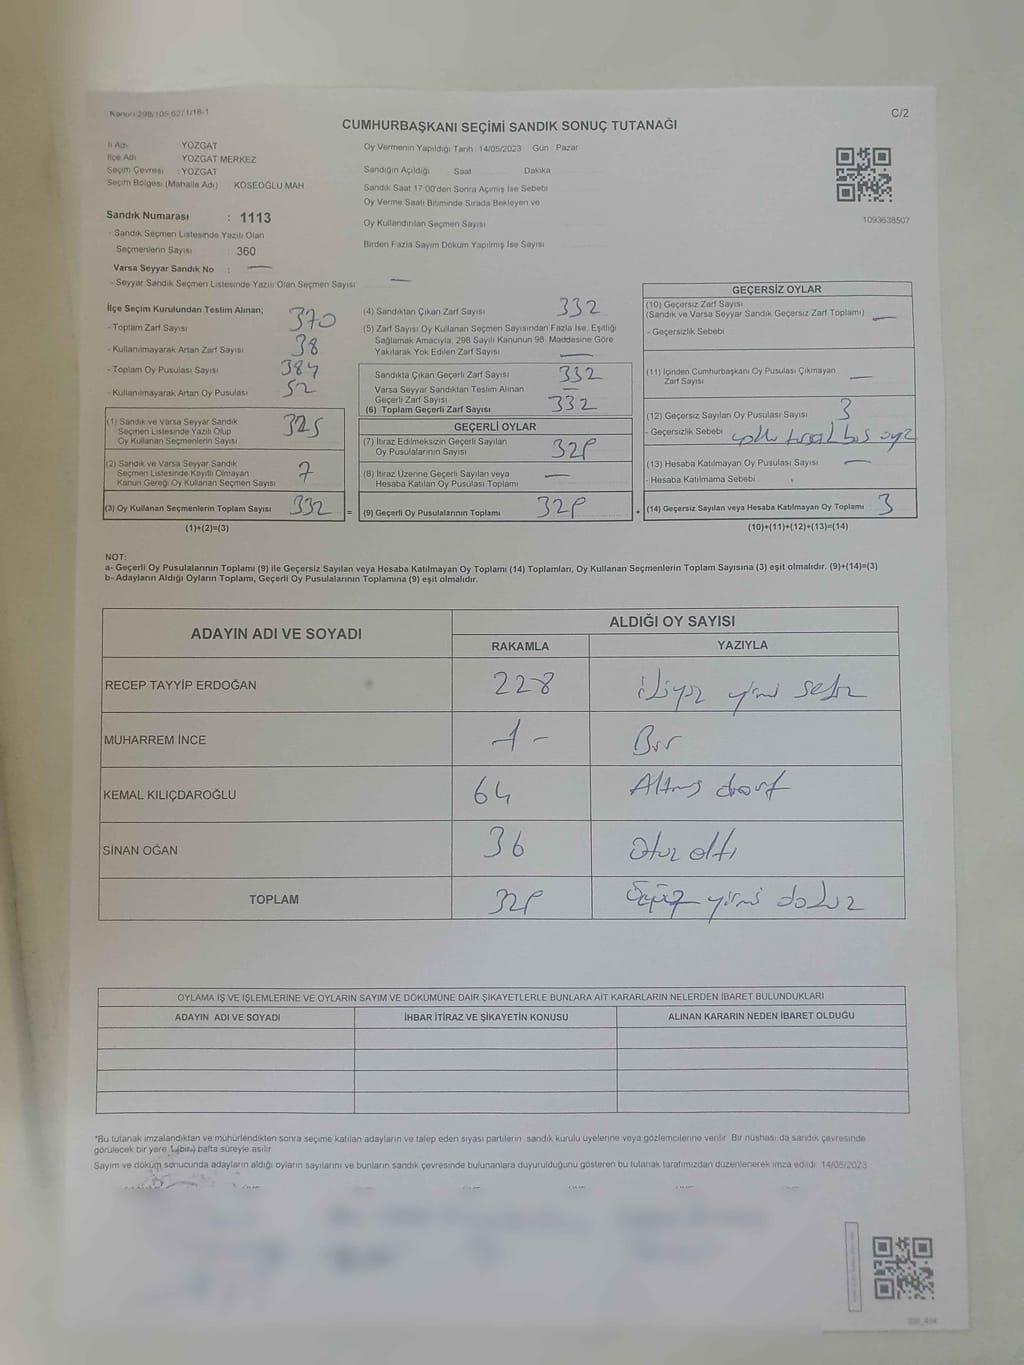 Kanun 298/105,62/1/18-1
C/2
CUMHURBAŞKANI SEÇİMİ SANDIK SONUÇ TUTANAĞI
İl Adı YOZGAT
İlçe Adı YOZGAT MERKEZ
Seçim Çevresi : YOZGAT
Seçim Bölgesi (Mahalle Adı) KÖSEOĞLU MAH
Sandık Numarası : 1113
- Sandık Seçmen Listesinde Yazılı Olan
Seçmenlerin Sayısı : 360
Varsa Seyyar Sandık No : —
- Seyyar Sandık Seçmen Listesinde Yazılı Olan Seçmen Sayısı —
Oy Vermenin Yapıldığı Tarih : 14/05/2023 Gün : Pazar
Sandığın Açıldığı Saat Dakika
Sandık Saat 17:00'den Sonra Açımış İse Sebebi
Oy Verme Saati Bitiminde Sırada Bekleyen ve
Oy Kullandırılan Seçmen Sayısı
Birden Fazla Sayım Döküm Yapılmış İse Sayısı
1093638507
İlçe Seçim Kurulundan Teslim Alınan;
- Toplam Zarf Sayısı 370
- Kullanılmayarak Artan Zarf Sayısı 38
- Toplam Oy Pusulası Sayısı 384
- Kullanılmayarak Artan Oy Pusulası 52
(1) Sandık ve Varsa Seyyar Sandık
Seçmen Listesinde Yazılı Olup
Oy Kullanan Seçmenlerin Sayısı 325
(2) Sandık ve Varsa Seyyar Sandık
Seçmen Listesinde Kayıtlı Olmayan
Kanun Gereği Oy Kullanan Seçmen Sayısı 7
(3) Oy Kullanan Seçmenlerin Toplam Sayısı 332 =
(1)+(2)=(3)
(4) Sandıktan Çıkan Zarf Sayısı 332
(5) Zarf Sayısı Oy Kullanan Seçmen Sayısından Fazla İse, Eşitliği
Sağlamak Amacıyla, 298 Sayılı Kanunun 98. Maddesine Göre
Yakılarak Yok Edilen Zarf Sayısı —
Sandıkta Çıkan Geçerli Zarf Sayısı 332
Varsa Seyyar Sandıktan Teslim Alınan
Geçerli Zarf Sayısı —
(6) Toplam Geçerli Zarf Sayısı 332
GEÇERLİ OYLAR
(7) İtiraz Edilmeksizin Geçerli Sayılan
Oy Pusulalarının Sayısı 329
(8) İtiraz Üzerine Geçerli Sayılan veya
Hesaba Katılan Oy Pusulası Toplamı —
(9) Geçerli Oy Pusulalarının Toplamı 329 +
GEÇERSİZ OYLAR
(10) Geçersiz Zarf Sayısı
(Sandık ve Varsa Seyyar Sandık Geçersiz Zarf Toplamı) —
- Geçersizlik Sebebi
(11) İçinden Cumhurbaşkanı Oy Pusulası Çıkmayan
Zarf Sayısı —
(12) Geçersiz Sayılan Oy Pusulası Sayısı 3
- Geçersizlik Sebebi
(13) Hesaba Katılmayan Oy Pusulası Sayısı —
- Hesaba Katılmama Sebebi
(14) Geçersiz Sayılan veya Hesaba Katılmayan Oy Toplamı 3
(10)+(11)+(12)+(13)=(14)
NOT:
a- Geçerli Oy Pusulalarının Toplamı (9) ile Geçersiz Sayılan veya Hesaba Katılmayan Oy Toplamı (14) Toplamları, Oy Kullanan Seçmenlerin Toplam Sayısına (3) eşit olmalıdır. (9)+(14)=(3)
b- Adayların Aldığı Oyların Toplamı, Geçerli Oy Pusulalarının Toplamına (9) eşit olmalıdır.
ADAYIN ADI VE SOYADI ALDIĞI OY SAYISI
RAKAMLA YAZIYLA
RECEP TAYYİP ERDOĞAN 228 ikiyüz yirmi sekiz
MUHARREM İNCE -1- Bir
KEMAL KILIÇDAROĞLU 64 Altmış dört
SİNAN OĞAN 36 otuz altı
TOPLAM 329 üçyüz yirmi dokuz
OYLAMA İŞ VE İŞLEMLERİNE VE OYLARIN SAYIM VE DÖKÜMÜNE DAİR ŞİKAYETLERLE BUNLARA AİT KARARLARIN NELERDEN İBARET BULUNDUKLARI
ADAYIN ADI VE SOYADI İHBAR İTİRAZ VE ŞİKAYETİN KONUSU ALINAN KARARIN NEDEN İBARET OLDUĞU
*Bu tutanak imzalandıktan ve mühürlendikten sonra seçime katılan adayların ve talep eden siyasi partilerin sandık kurulu üyelerine veya gözlemcilerine verilir. Bir nüshası da sandık çevresinde
görülecek bir yere 1 (bir) hafta süreyle asılır
Sayım ve döküm sonucunda adayların aldığı oyların sayılarını ve bunların sandık çevresinde bulunanlara duyurulduğunu gösteren bu tutanak tarafımızdan düzenlenerek imza edildi. 14/05/2023